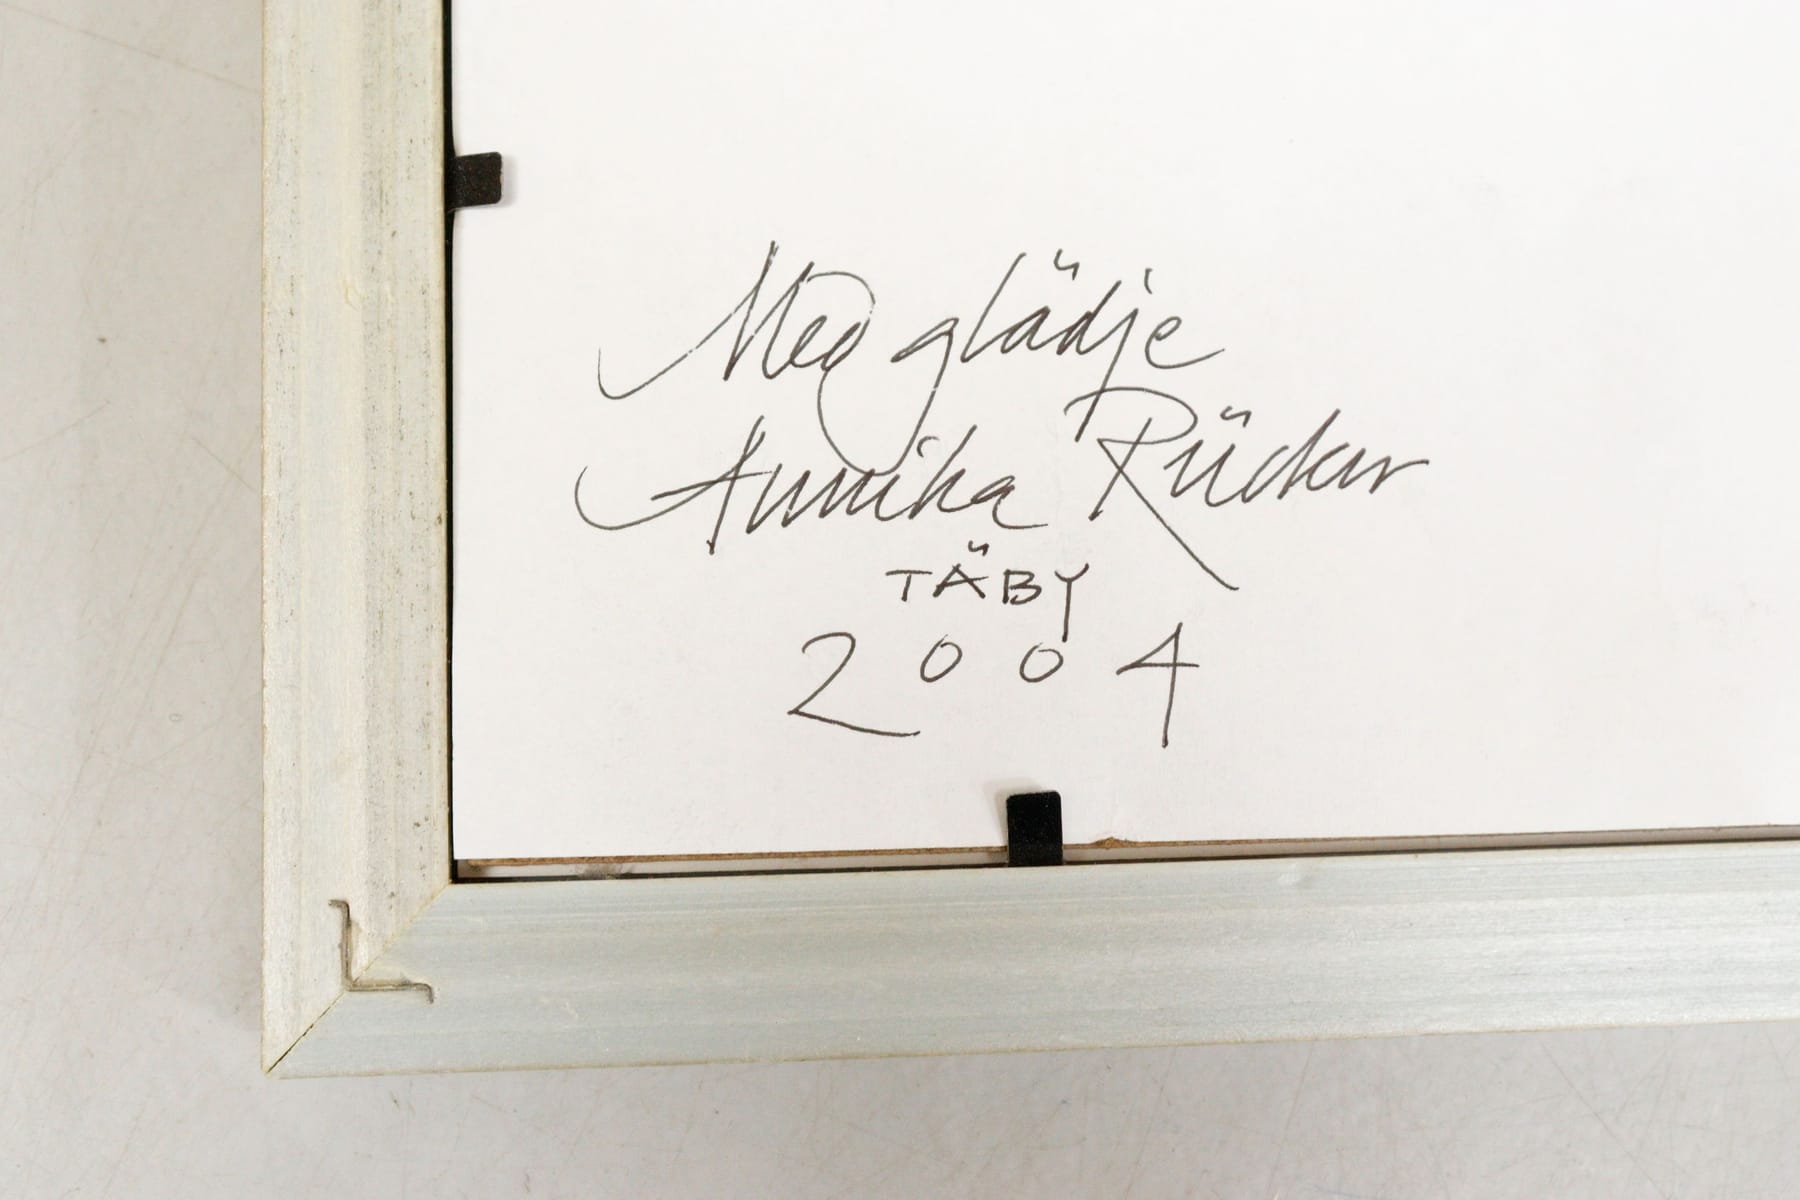 Med glädje
Annika Rücker
TÄBY
2004